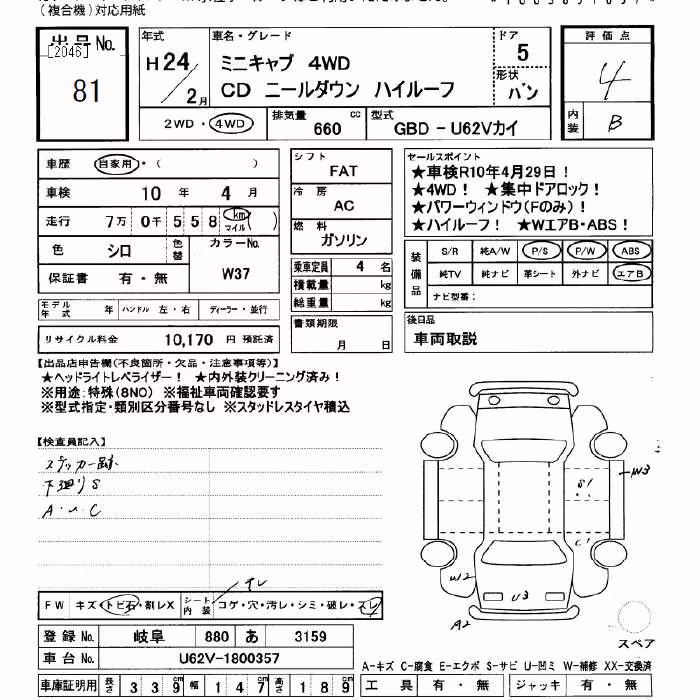 (複合機)対応用紙
出品No.
[2046]
81
年式
H24/2月
車名・グレード
ミニキャブ 4WD
CD ニールダウン ハイルーフ
ドア
5
形状
バン
評価点
4
内装
B
2WD・4WD
排気量 660 cc
型式 GBD - U62Vカイ
車歴 自家用・( )
車検 10年 4月
走行 7万 0千 5 5 8 km マイル( )
色 シロ 色替
カラーNo. W37
保証書 有・無
モデル年式 年 ハンドル 左・右 ディーラー・並行
リサイクル料金 10,170 円 預託済
シフト
FAT
冷房
AC
燃料
ガソリン
乗車定員 4 名
積載量 kg
総重量 kg
書類期限
月 日
セールスポイント
★車検R10年4月29日!
★4WD! ★集中ドアロック!
★パワーウィンドウ(Fのみ)!
★ハイルーフ! ★WエアB・ABS!
装備品
S/R 純A/W P/S P/W ABS
純TV 純ナビ 革シート 外ナビ エアB
ナビ型番:
後日品
車両取説
【出品店申告欄(不良箇所・欠品・注意事項等)】
★ヘッドライトレベライザー! ★内外装クリーニング済み!
※用途:特殊(8NO) ※福祉車両確認要す
※型式指定・類別区分番号なし ※スタッドレスタイヤ積込
【検査員記入】
ステッカー跡
下廻りS
A・U・C
スレ
FW キズ・トビ石・割レX シート内装 コゲ・穴・汚レ・シミ・破レ・スレ
登録No. 岐阜 880 あ 3159
車台No. U62V-1800357
車庫証明用 長さ 3 3 9 幅 1 4 7 高さ 1 8 9
W3
S1
C1
W2
U3
A2
スペア
A-キズ C-腐食 E-エクボ S-サビ U-凹ミ W-補修 XX-交換済
工具 有・無 ジャッキ 有・無